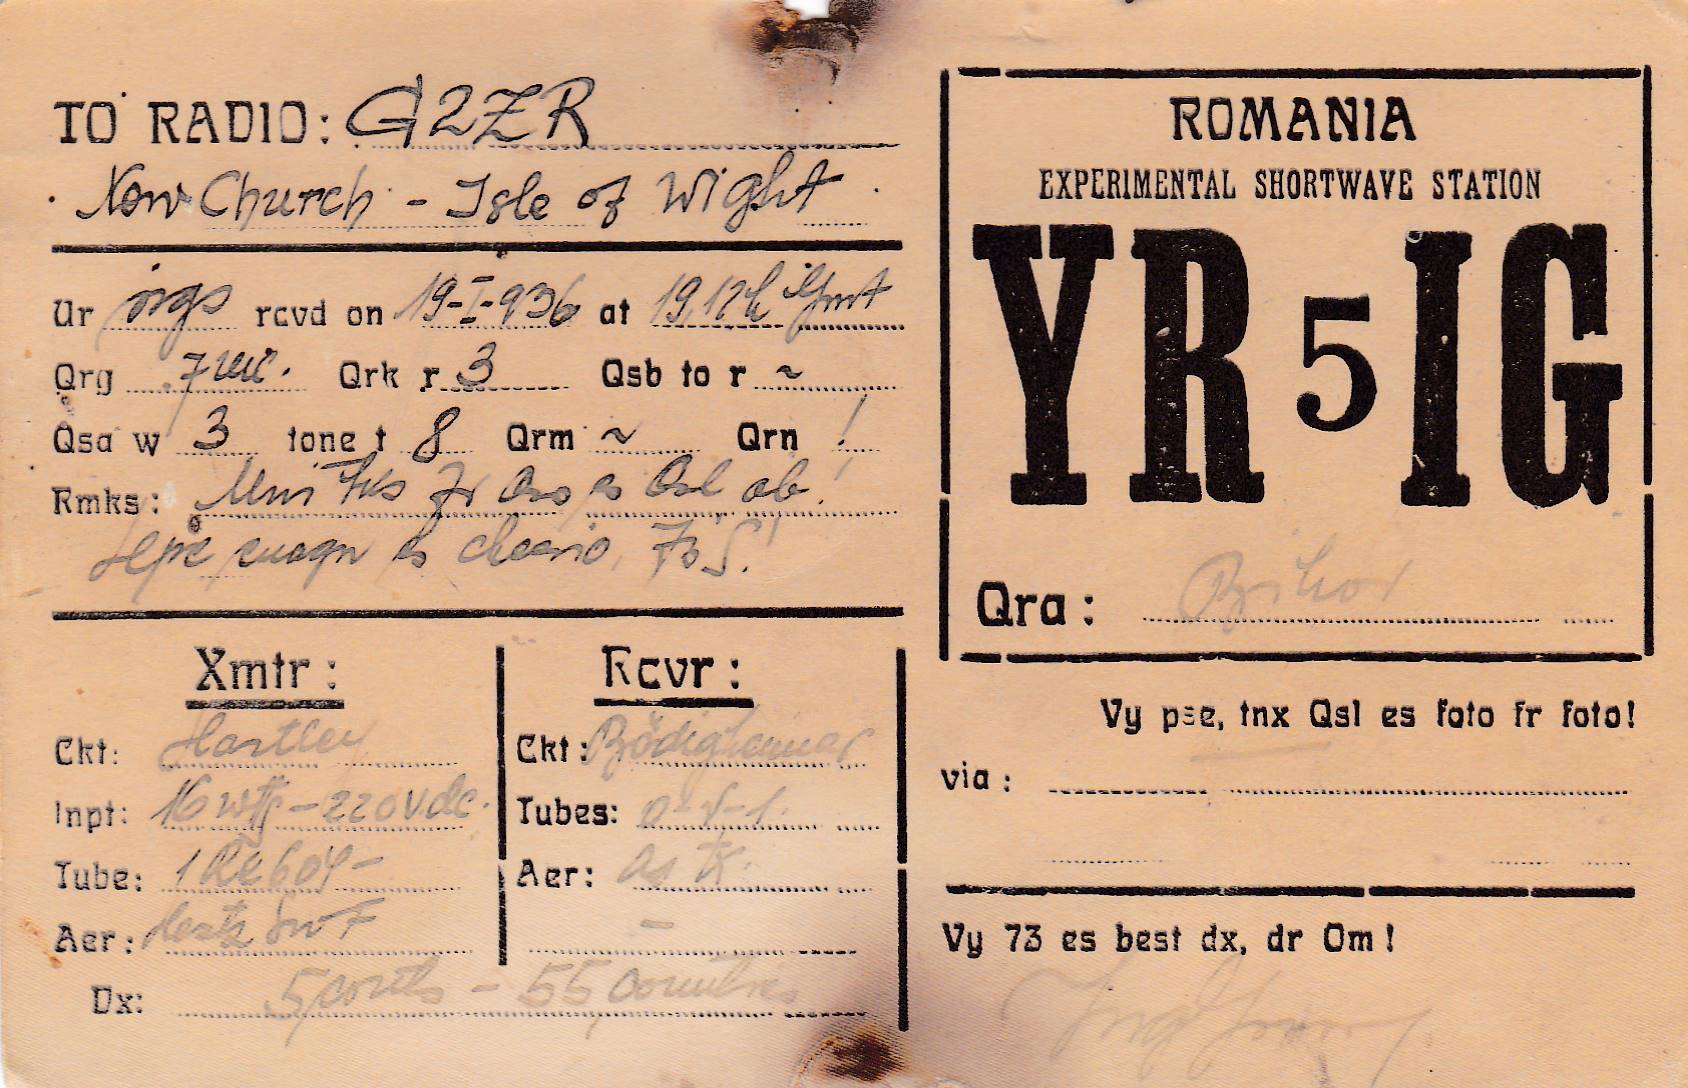 TO RADIO: G2ZR
New Church - Isle of Wight
Ur sigs rcvd on 19-I-936 at 19,12h Gmt
Qrg 7 mc. Qrk r 3 Qsb to r ~
Qsa w 3 tone t 8 Qrm ~ Qrn !
Rmks: Mni Tks fr Qso es Qsl ob!
Hpe cuagn es cheerio, 73's!
Xmtr:
Ckt: Hartley
Inpt: 16 wtts - 220 v dc.
Tube: 1 RE 604 -
Aer: Hertz
Dx: 5 conts - 55 countries
Rcvr:
Ckt:
Tubes: 0-V-1.
Aer: as tx.
-
ROMANIA
EXPERIMENTAL SHORTWAVE STATION
YR5IG
Qra: Bihor
Vy pse, tnx Qsl es foto fr foto!
via:
Vy 73 es best dx, dr Om!